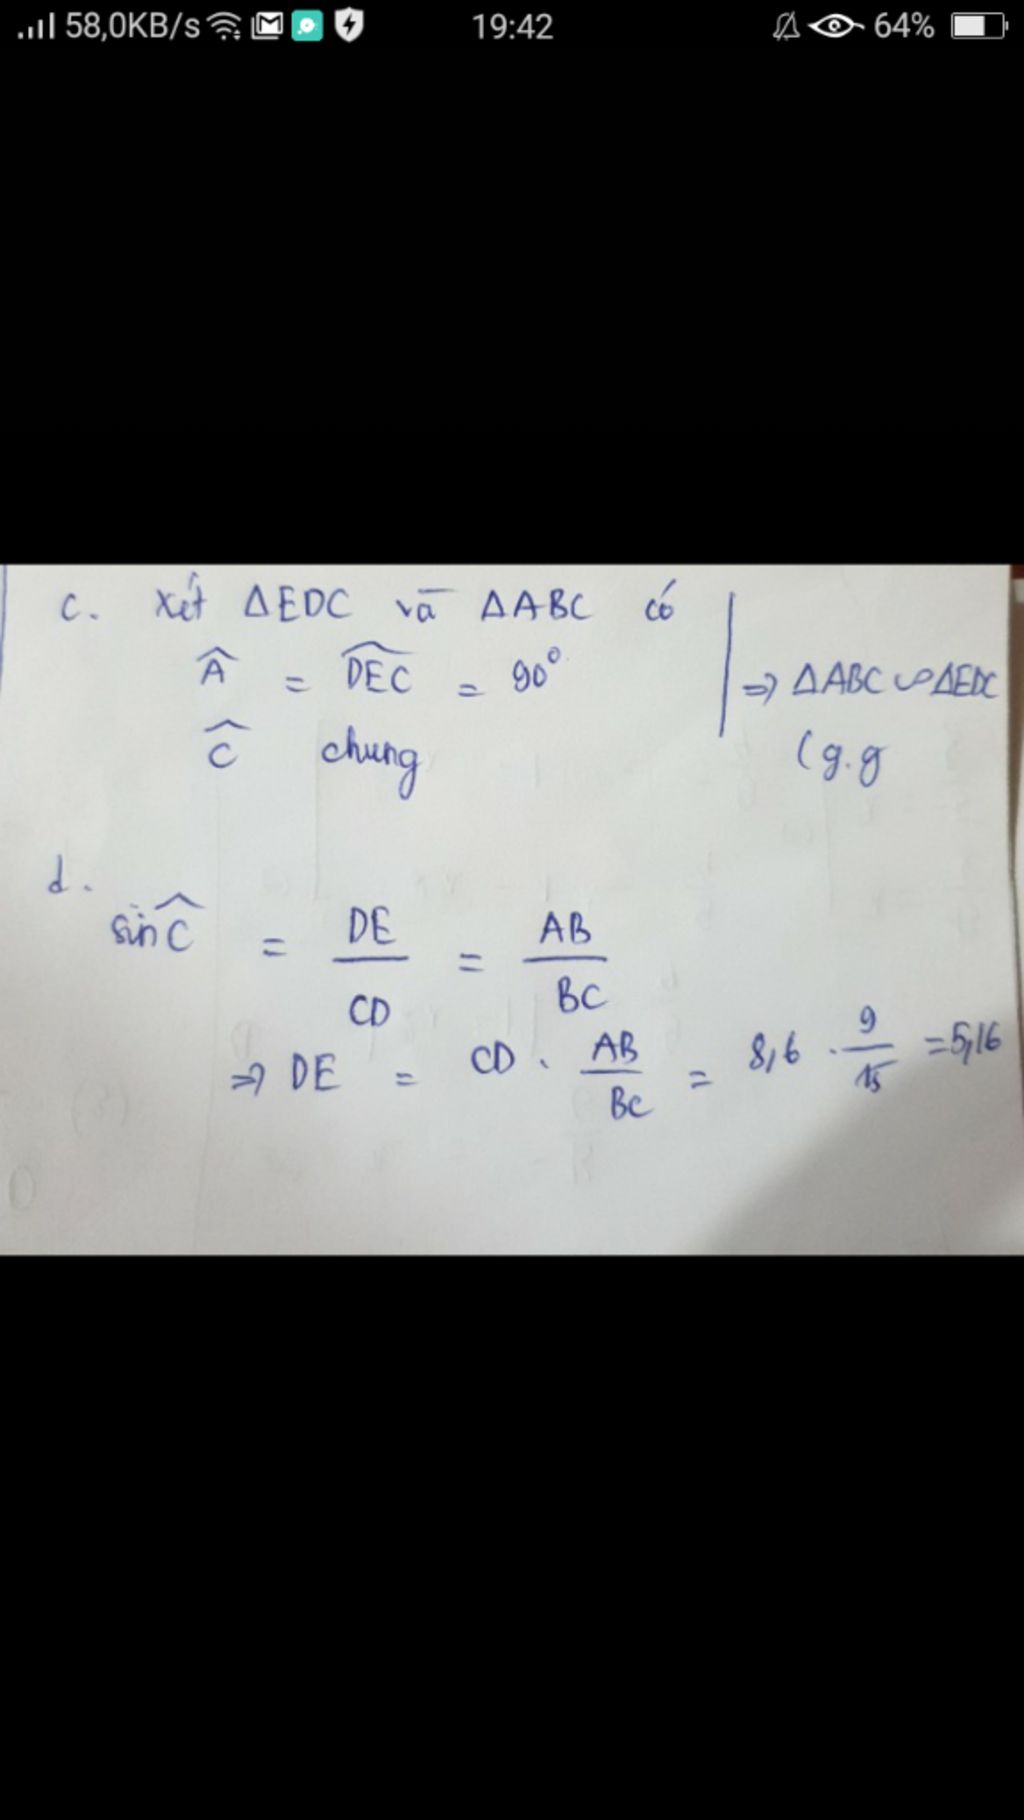 58,0KB/s 19:42 64%
c. Xét ΔEDC và ΔABC có
Â = \widehat{DEC} = 90° ⇒ ΔABC ∽ ΔEDC
Ĉ chung (g.g
d.
sin Ĉ = DE/CD = AB/BC
⇒ DE = CD . AB/BC = 8,6 . 9/15 = 5,16